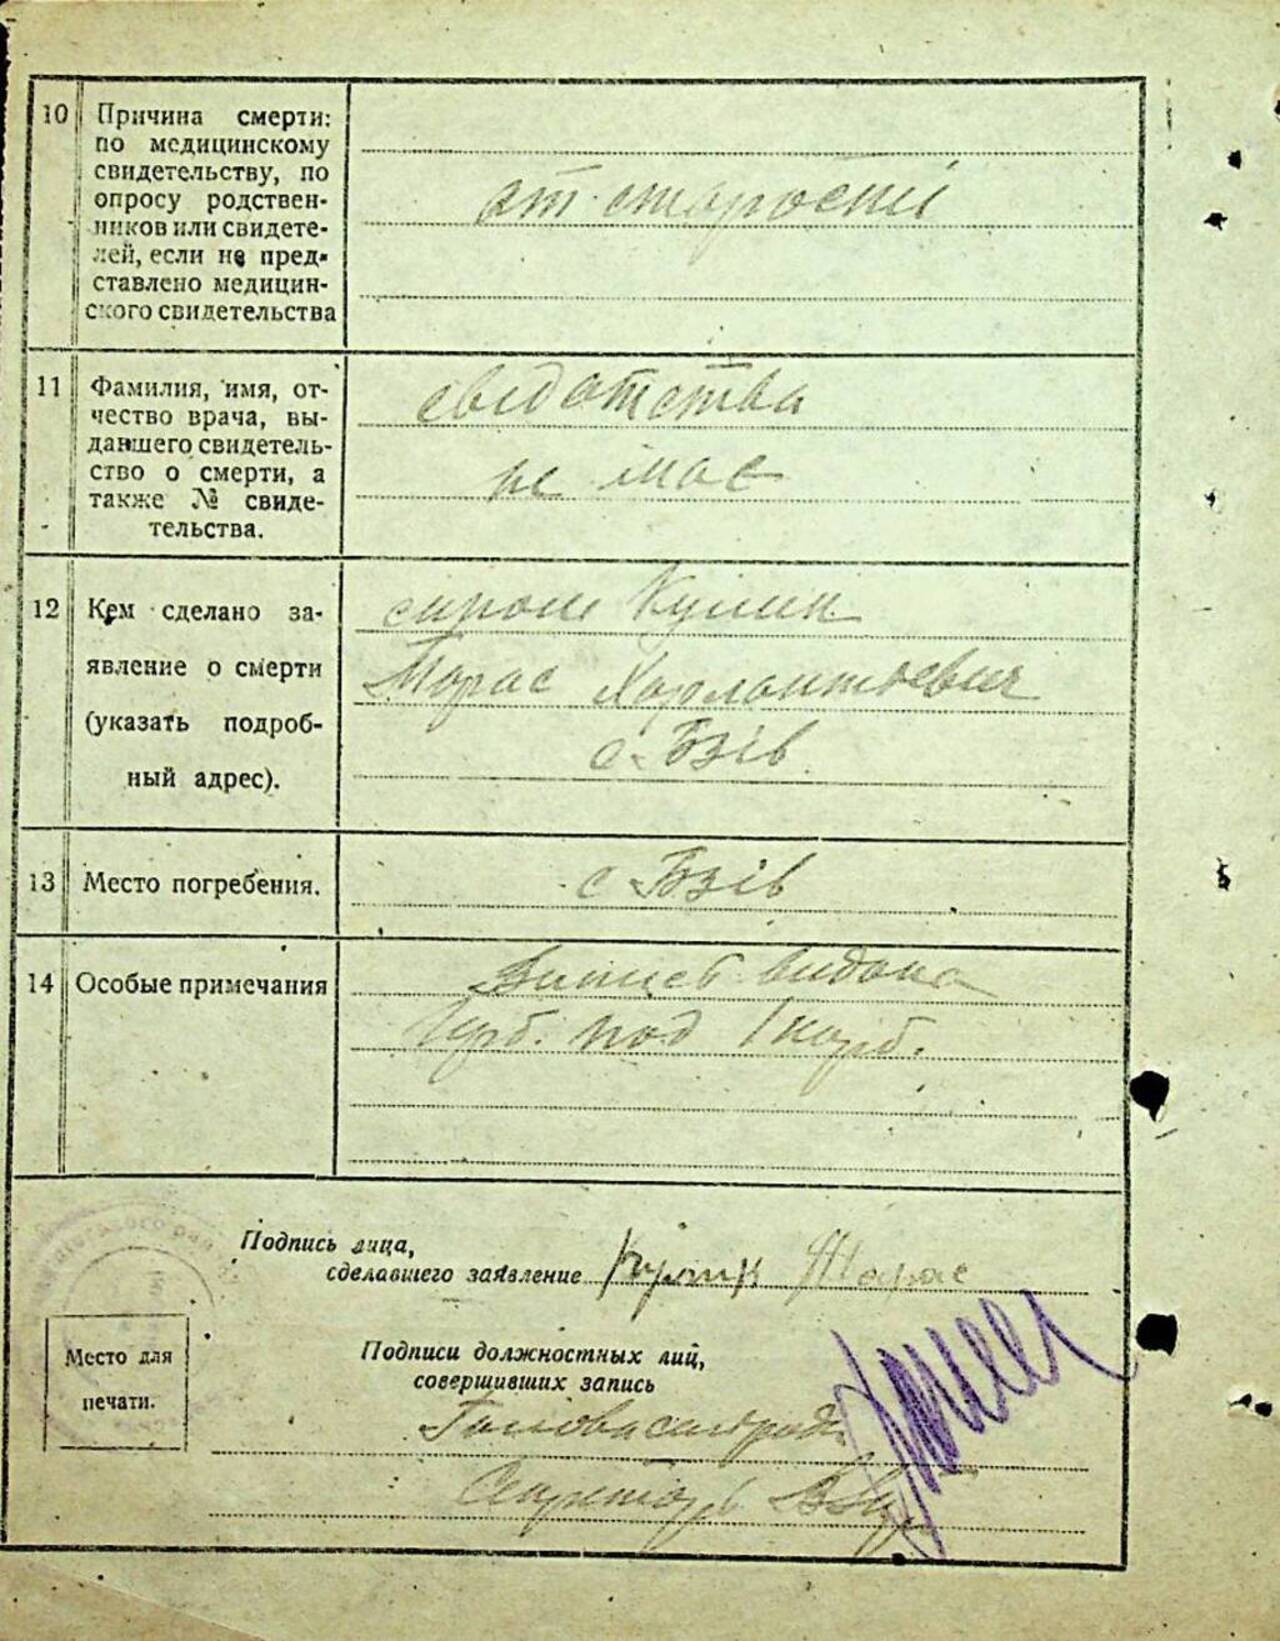 10 Причина смерти:
по медицинскому
свидетельству, по
опросу родствен-
ников или свидете-
лей, если не пред-
ставлено медицин-
ского свидетельства
от старости
11 Фамилия, имя, от-
чество врача, вы-
давшего свидетель-
ство о смерти, а
также № свиде-
тельства.
свідотства
не має
12 Кем сделано за-
явление о смерти
(указать подроб-
ный адрес).
сином Кулик
Тарас Харлантоевич
с. Бзів
13 Место погребения.
с. Бзів
14 Особые примечания
видана
под
Подпись лица,
сделавшего заявление Кулик Тарас
Место для
печати.
Подписи должностных лиц,
совершивших запись
Голова сильрад.
Секретарь